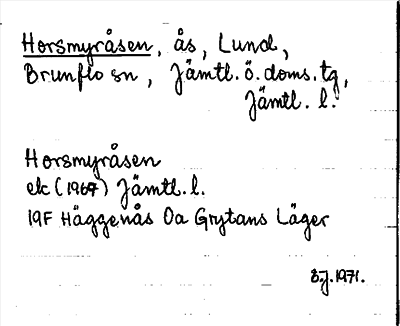 Horsmyråsen, ås, Lund,
Brunflo sn, Jämtl. ö. doms. tg,
Jämtl. l.
Horsmyråsen
ek (1967) Jämtl. l.
19F Häggenås Oa Grytans Läger
1971.